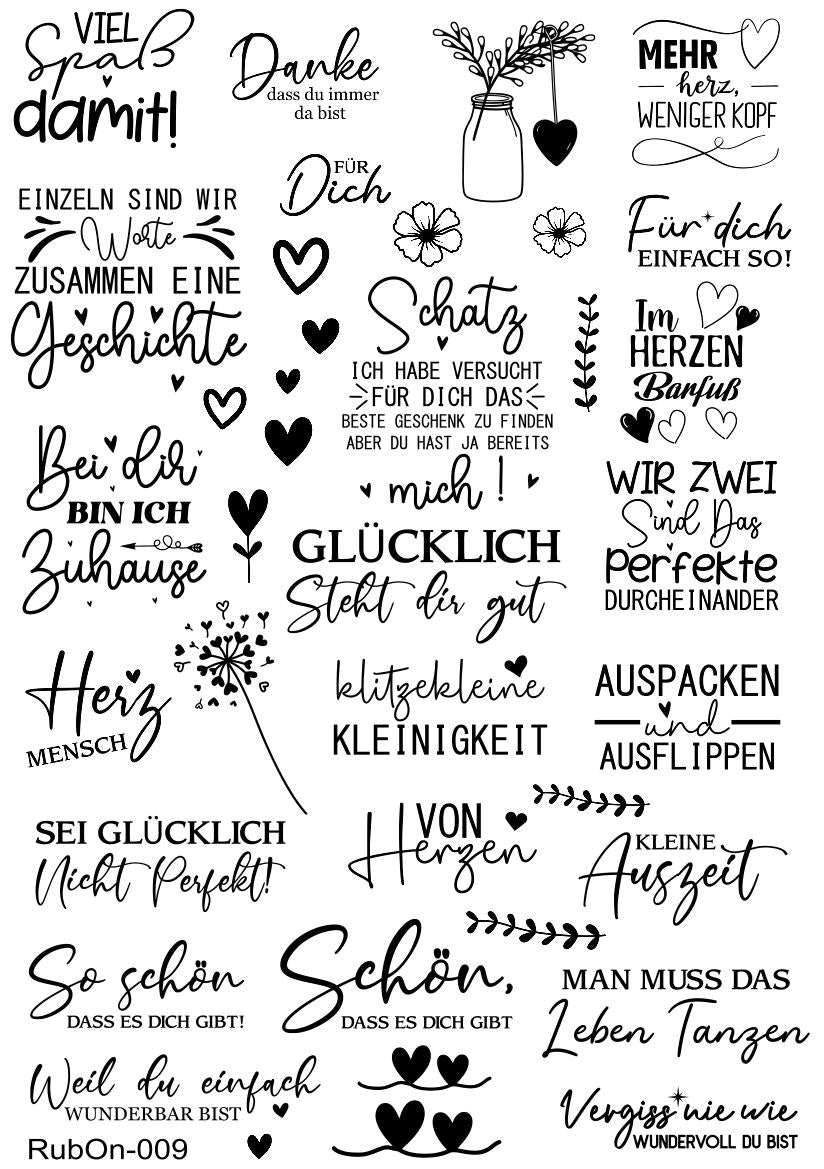 VIEL
Spaß
damit!
Danke
dass du immer
da bist
MEHR
herz,
WENIGER KOPF
FÜR
Dich
EINZELN SIND WIR
Worte
ZUSAMMEN EINE
Geschichte
Für dich
EINFACH SO!
Schatz
ICH HABE VERSUCHT
FÜR DICH DAS
BESTE GESCHENK ZU FINDEN
ABER DU HAST JA BEREITS
mich!
Im
HERZEN
Barfuß
Bei dir
BIN ICH
Zuhause
WIR ZWEI
Sind Das
Perfekte
DURCHEINANDER
GLÜCKLICH
Steht dir gut
Herz
MENSCH
klitzekleine
KLEINIGKEIT
AUSPACKEN
und
AUSFLIPPEN
SEI GLÜCKLICH
Nicht Perfekt!
VON
Herzen
KLEINE
Auszeit
So schön
DASS ES DICH GIBT!
Schön,
DASS ES DICH GIBT
MAN MUSS DAS
Leben Tanzen
Weil du einfach
WUNDERBAR BIST
Vergiss nie wie
WUNDERVOLL DU BIST
RubOn-009